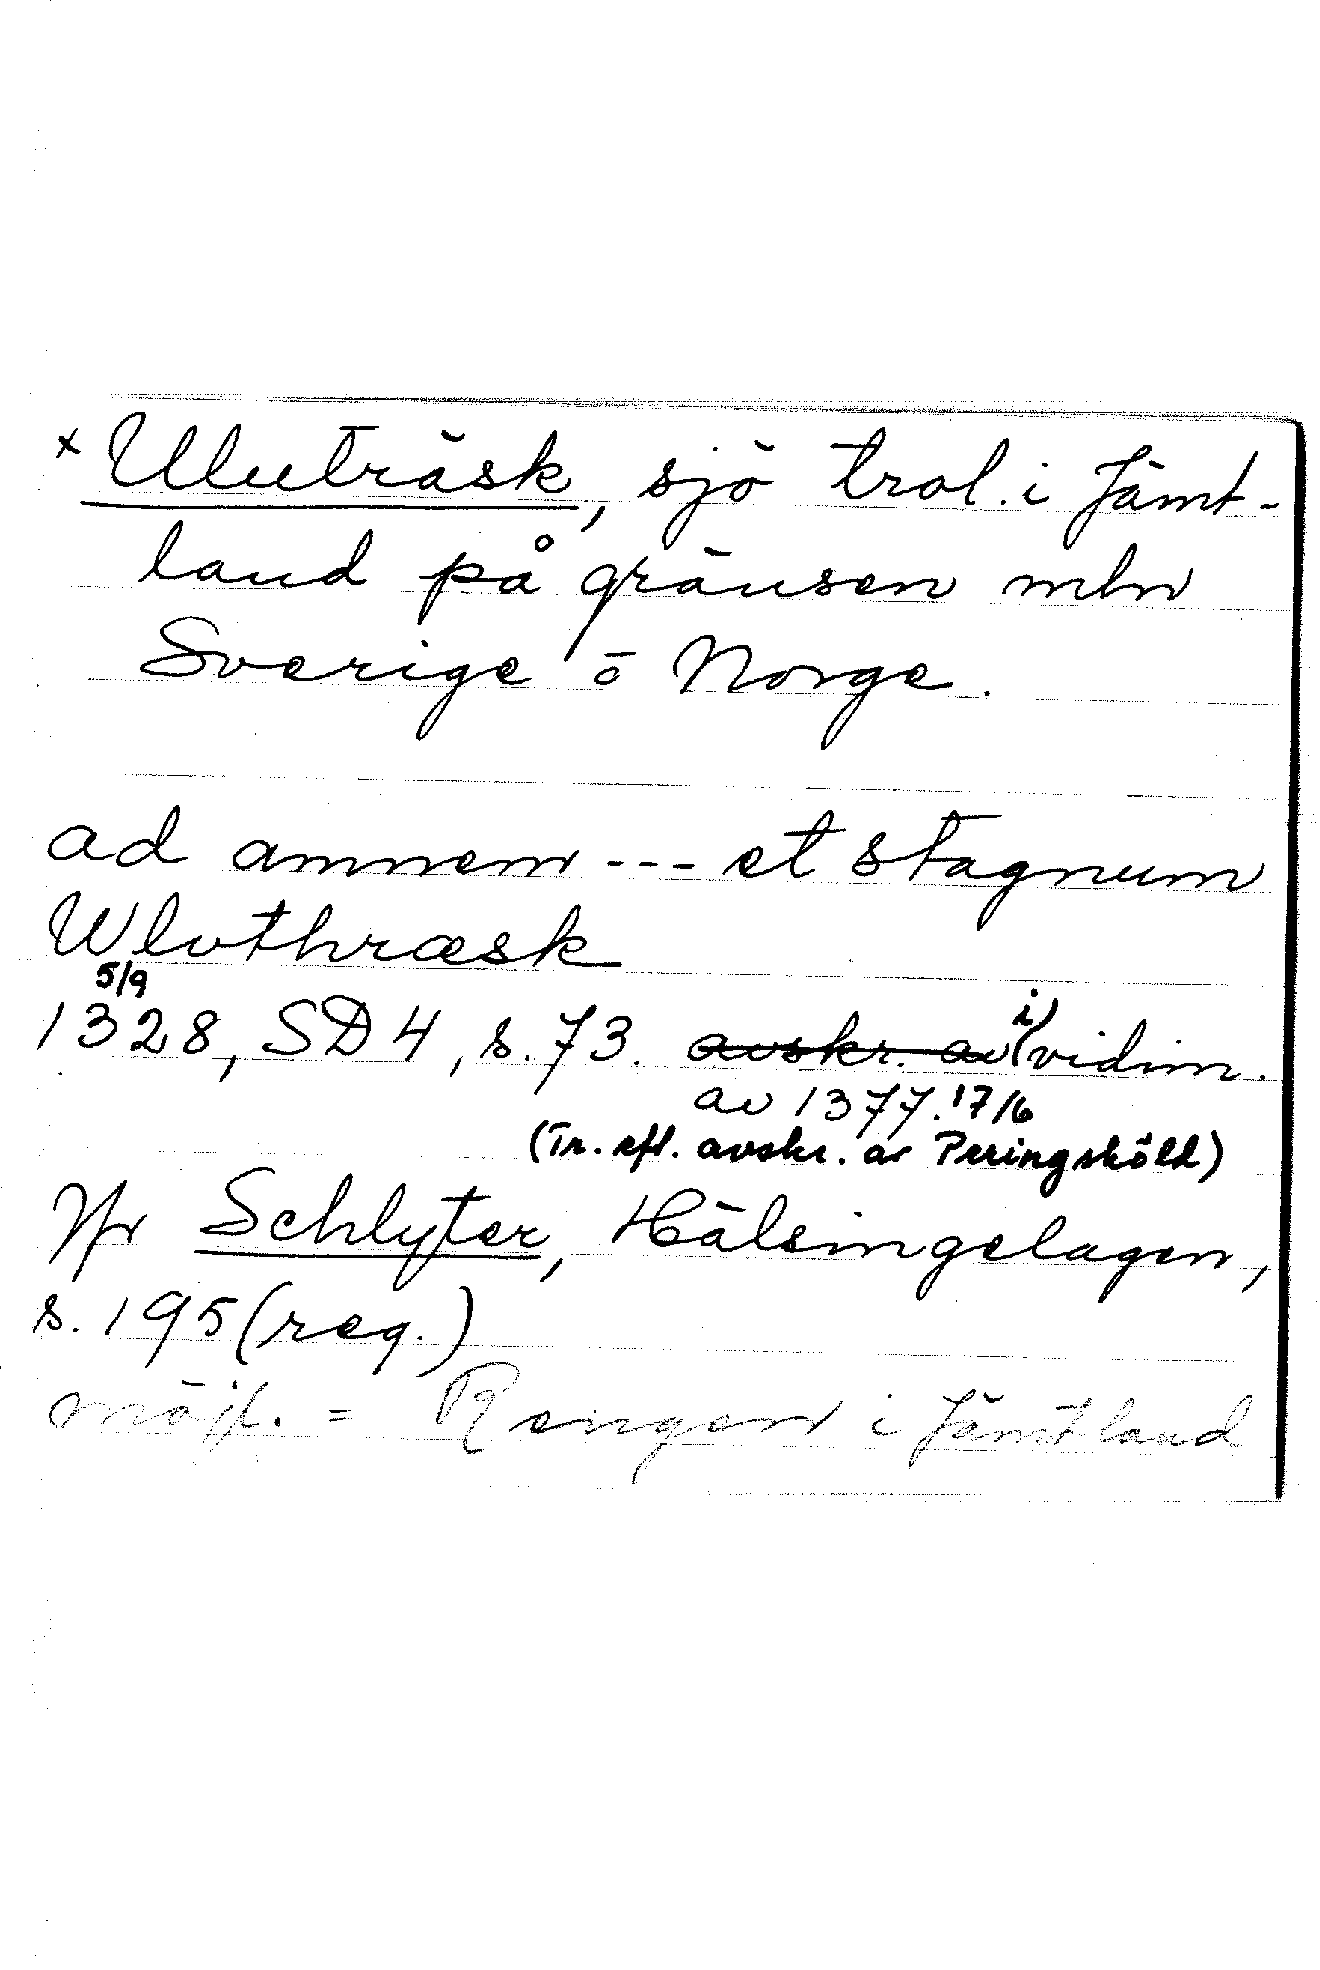 × Uluträsk, sjö trol. i Jämt-
land på gränsen mln
Sverige o Norge.
ad amnem --- et stagnum
Wlvthræsk
5/9
1328, SD 4, s. 73. avskr. av i vidim.
av 1377. 17/6
(Tr. eft. avskr. av Peringsköld)
Jfr Schlyter, Hälsingelagen,
s. 195 (reg.)
möjl. = Rengen i Jämtland